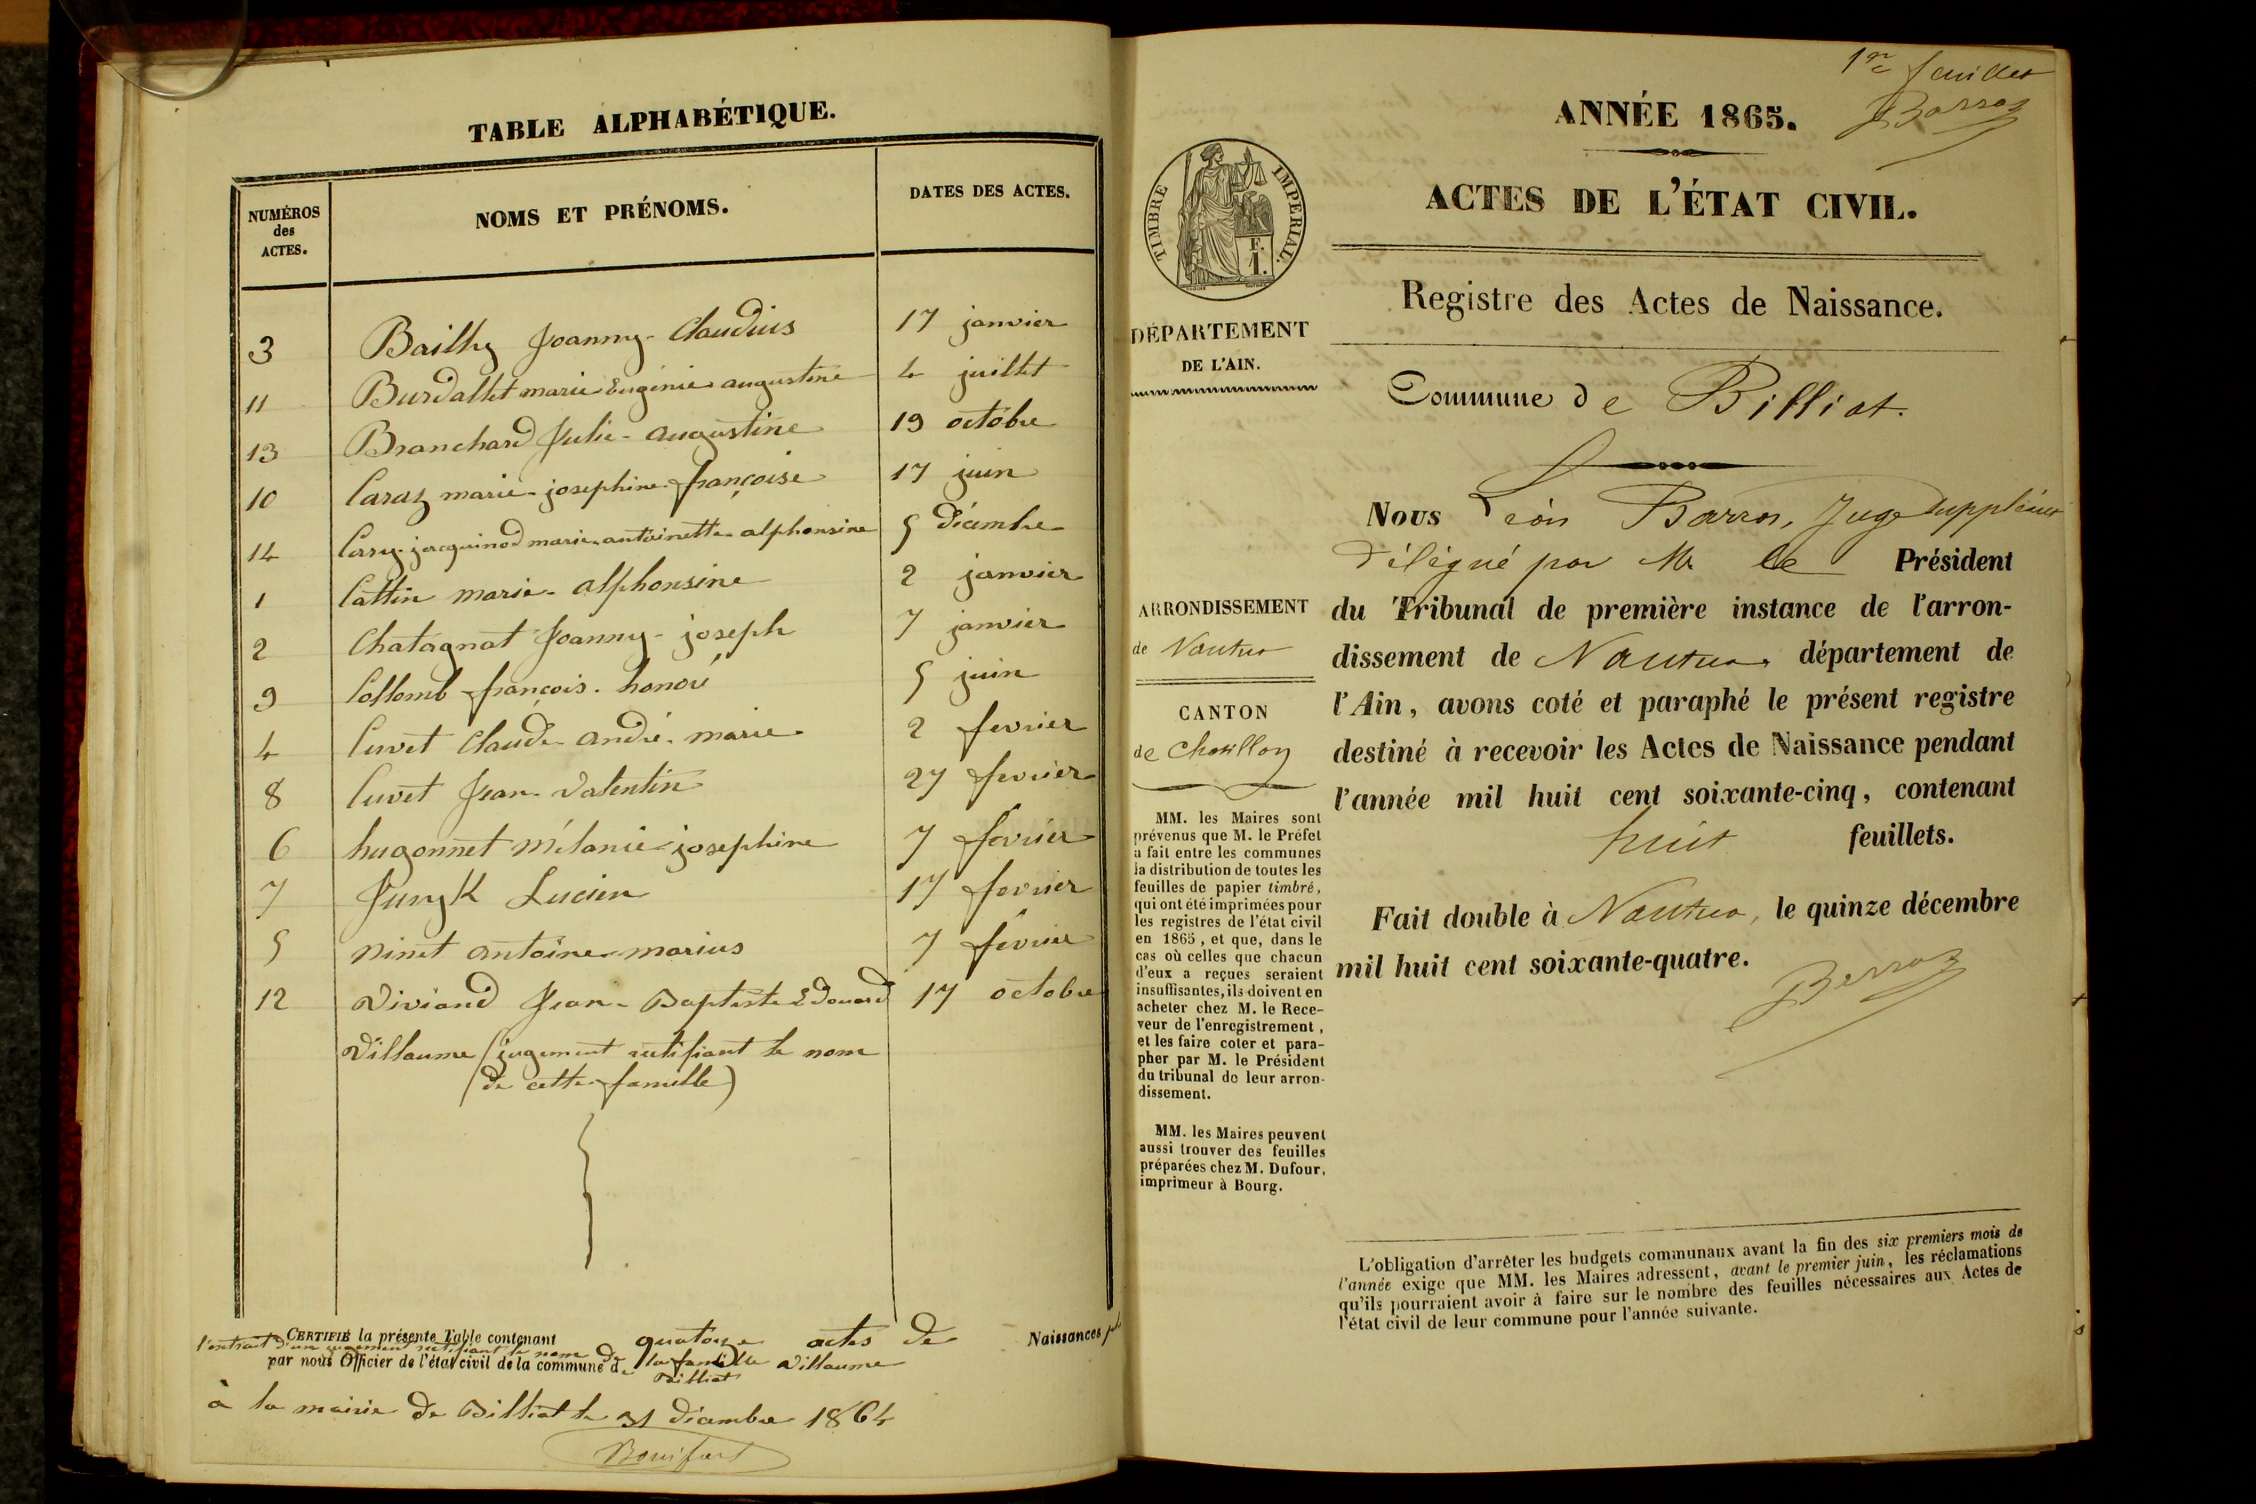 TABLE ALPHABÉTIQUE.
NUMÉROS des ACTES.
NOMS ET PRÉNOMS.
DATES DES ACTES.
3 Bailly Joanny-Claudius 17 janvier
11 Burdallet marie Eugénie augustine 4 juillet
13 Branchard Julie-augustine 19 octobre
10 Caraz marie-josephine françoise 17 juin
14 jacquinod marie antoinette alphonsine 5 décembre
1 Cattin marie-alphonsine 2 janvier
2 Chatagnat Joanny-joseph 7 janvier
9 Collomb françois-honoré 5 juin
4 Cuvet Claude andré-marie 2 fevrier
8 Cuvet Jean-Valentin 27 fevrier
6 hugonnet Mélanie-josephine 7 fevrier
7 Jungk Lucien 17 fevrier
5 ninet antoine marius 7 février
12 Viviand Jean-Baptiste Edouard 17 octobre
Villaume (jugement rectifiant le nom
de cette famille)
CERTIFIÉ la présente Table contenant quatorze actes de Naissances
l'extrait d'un jugement rectifiant le nom de la famille Villaume
par nous Officier de l'état civil de la commune de Billiat
à la mairie de Billiat le 31 décembre 1864
1er feuillet
Barros
ANNÉE 1865.
ACTES DE L'ÉTAT CIVIL.
TIMBRE IMPERIAL.
F.
1.
Registre des Actes de Naissance.
DÉPARTEMENT
DE L'AIN.
Commune de Billiat.
Nous Léon Barros, Juge Suppléant
délégué par M. le Président
du Tribunal de première instance de l'arron-
dissement de Nantua, département de
l'Ain, avons coté et paraphé le présent registre
destiné à recevoir les Actes de Naissance pendant
l'année mil huit cent soixante-cinq, contenant
huit feuillets.
Fait double à Nantua, le quinze décembre
mil huit cent soixante-quatre.
Barros
ARRONDISSEMENT
de Nantua
CANTON
de Chatillon
MM. les Maires sont
prévenus que M. le Préfet
a fait entre les communes
la distribution de toutes les
feuilles de papier timbré,
qui ont été imprimées pour
les registres de l'état civil
en 1865, et que, dans le
cas où celles que chacun
d'eux a reçues seraient
insuffisantes, ils doivent en
acheter chez M. le Rece-
veur de l'enregistrement,
et les faire coter et para-
pher par M. le Président
du tribunal de leur arron-
dissement.
MM. les Maires peuvent
aussi trouver des feuilles
préparées chez M. Dufour,
imprimeur à Bourg.
L'obligation d'arrêter les budgets communaux avant la fin des six premiers mois de
l'année exige que MM. les Maires adressent, avant le premier juin, les réclamations
qu'ils pourraient avoir à faire sur le nombre des feuilles nécessaires aux Actes de
l'état civil de leur commune pour l'année suivante.